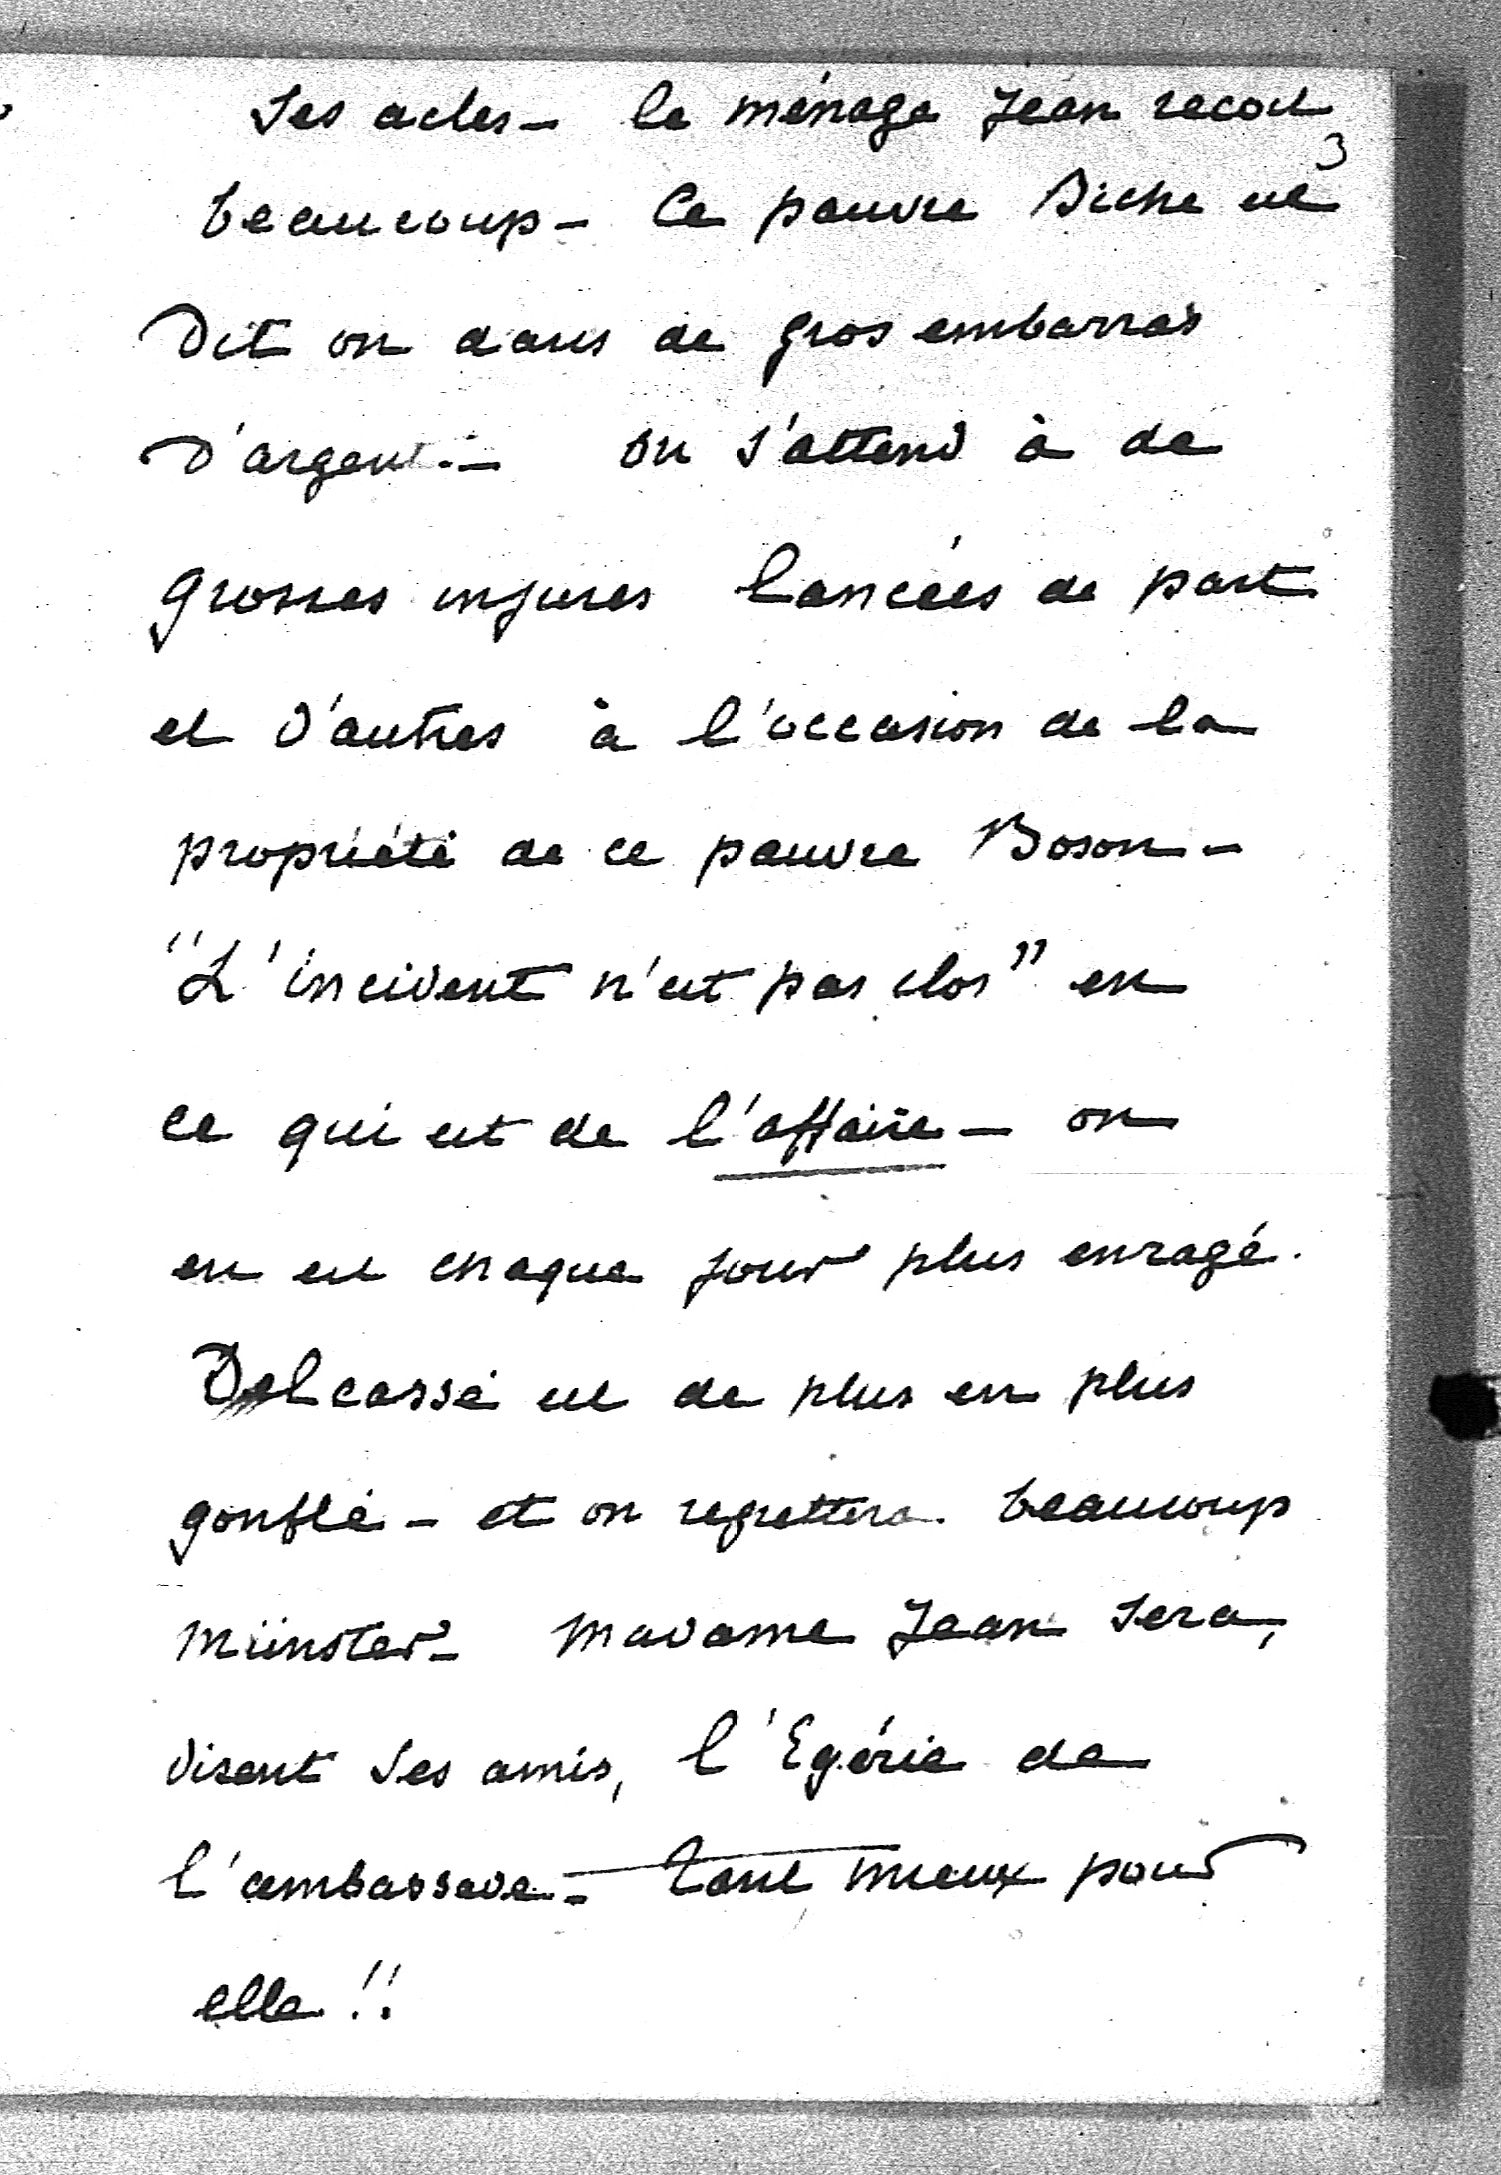 ses actes – le ménage Jean reçoit
3
beaucoup – Ce pauvre Biche est
Dit on dans de gros embarras
D'argent – on s'attend à de
grosses injures lancées de part
et d'autres à l'occasion de la
propriété de ce pauvre Boson –
"L'incident n'est pas clos" en
ce qui est de l'affaire – on
en est chaque jour plus enragé.
Delcassé est de plus en plus
gonflé – et on regrettera beaucoup
Münster – Madame Jean sera,
disent ses amis, l'Egérie de
l'ambassade – Tant mieux pour
elle !!